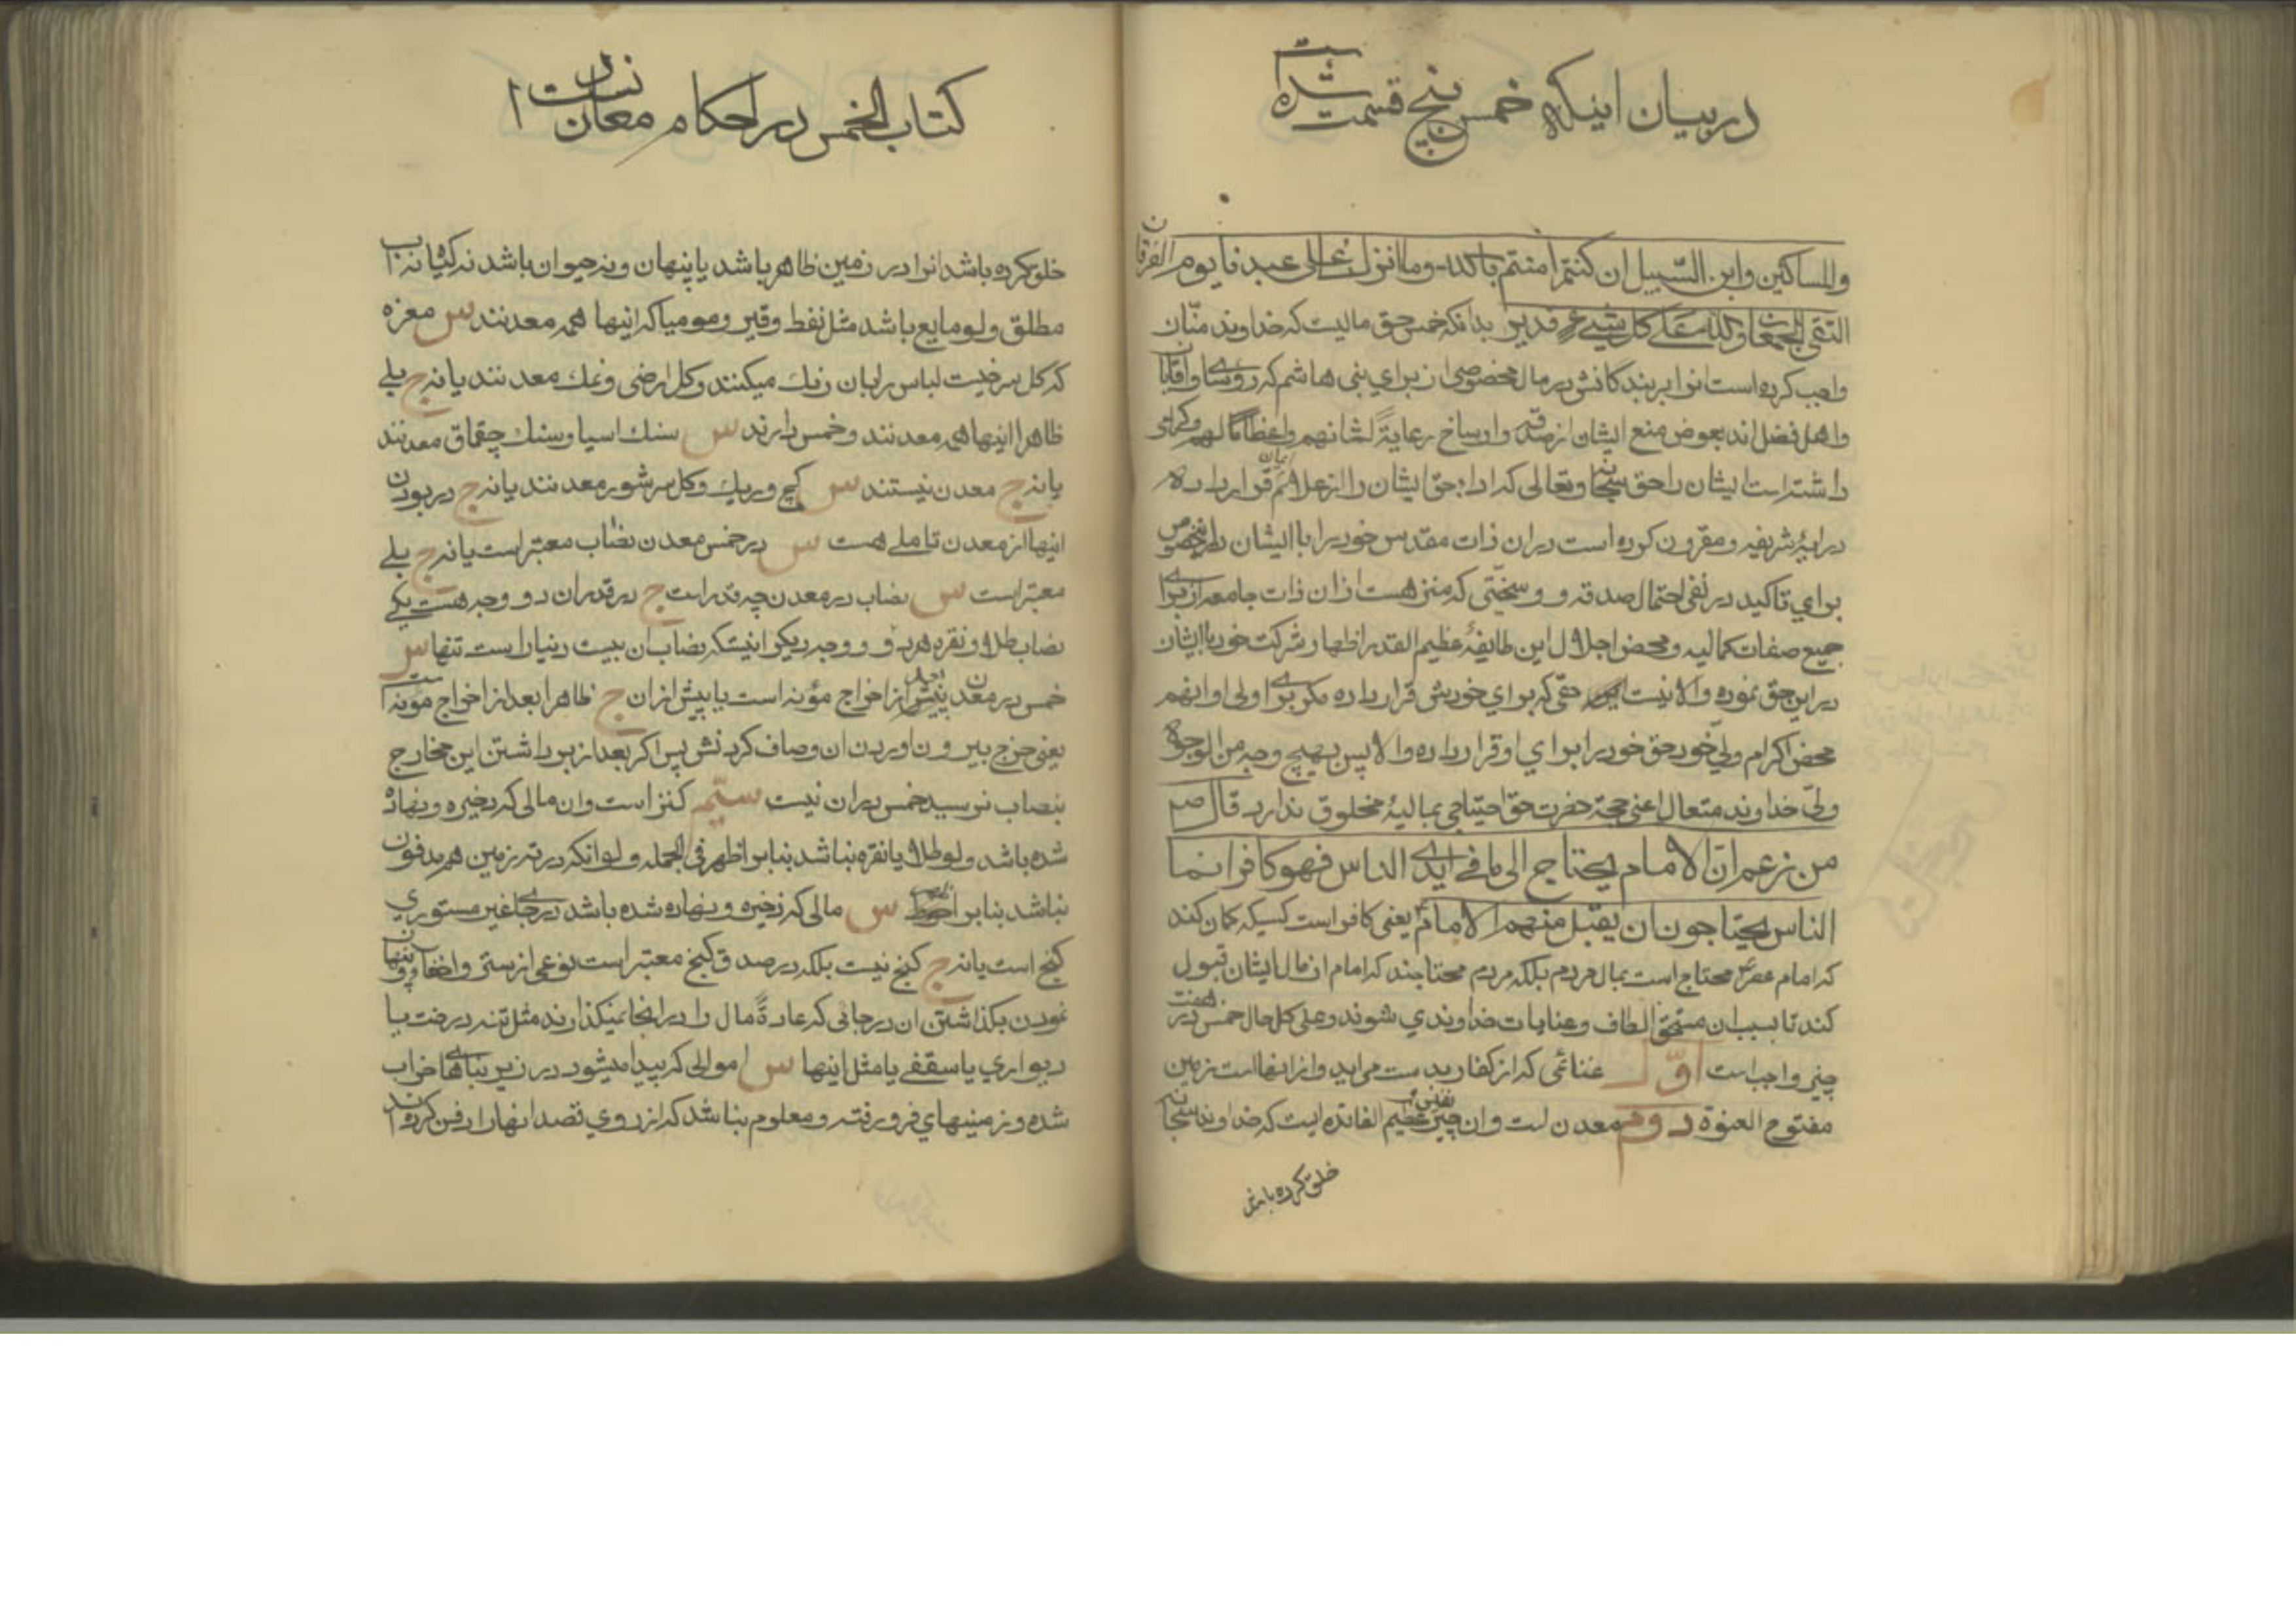 در بیان اینکه خمس پنج قسمت شده است
والمساکین وابن السّبیل ان کنتم امنتم بالله وما انزلنا علی عبدنا یوم الفرقان
التقی الجمعان والله علی کل شیء قدیر بدانکه خمس حق مالیست که خداوند منّان
واجب کرده است انرا بر بندگانش در مال مخصوصی از برای بنی هاشم که روسای واقایان
واهل فضل اند بعوض منع ایشان از صدقه واوساخ رعایةً لشانهم واعظامًا لهم وکرامی
داشته است ایشان را حق سبحانه وتعالی که اداء حق ایشان را از علائم ایمان قرار داده
در ایهٔ شریفه ومقرون کرده است در ان ذات مقدس خود را با ایشان در خصوص
برای تاکید در نفی احتمال صدقه و وسخیّتی که منزه است از ان ذات جامعه از برای
جمیع صفات کمالیه ومحض اجلال این طایفهٔ عظیم القدر اظهار شرکت خود با ایشان
در این حق نموده والا نیست حقی که برای خودش قرار داده مکر برای اولی او انهم
محض اکرام ولیّ خود حق خود را برای او قرار داده والا پس بهیچ وجه من الوجوه
ولیّ خداوند متعال اعنی حجة حضرت حق احتیاجی بمالیهٔ مخلوق ندارد قال ص
من زعم انّ الامام یحتاج الی ما فی ایدی الناس فهو کافر انما
الناس یحتاجون ان یقبل منهم الامام یعنی کافر است کسیکه کمان کند
که امام عصر محتاج است بمال مردم بلکه مردم محتاجند که امام از مال ایشان قبول
کند تا بسبب ان مستحق الطاف وعنایات خداوندی شوند وعلی کل حال خمس در هفت
چیز واجب است اوّل غنائمی که از کفار بدست می اید واز انها است زمین
مفتوح العنوة دوم معدن است وان چیز نفیس عظیم الفائده ایست که خداوند سبحانه
خلق کرده باشد
کتاب الخمس در احکام معادن است
خلق کرده باشد انرا در زمین ظاهر باشد یا پنهان ونه حیوان باشد نه کیاه نه اب
مطلق ولو مایع باشد مثل نفط وقیر ومومیا که اینها همه معدنند س مغره
که کل سرخیست لباس را بان رنك میکنند وکل ارضی ونمك معدنند یا نه ج بلی
ظاهرا اینها هم معدنند وخمس دارند س سنك اسیا وسنك چقماق معدنند
یا نه ج معدن نیستند س کچ وریك وکل سرشور معدنند یا نه ج در بودن
اینها از معدن تاملی هست س در خمس معدن نصاب معتبر است یا نه ج بلی
معتبر است س نصاب در معدن چه قدر است ج در قدر ان دو وجه هست یکی
نصاب طلا ونقره هر دو و وجه دیکر اینستکه نصاب ان بیست دینار است تنها س
خمس در معدن پیش از اخراج مؤنه است یا پیش از ان ج ظاهرا بعد از اخراج مؤنه است
یعنی خرج بیرون اوردن ان وصاف کردنش پس اکر بعد از برداشتن این مخارج
بنصاب نرسید خمس در ان نیست سیّم کنز است وان مالی که ذخیره ونهاده
شده باشد ولو طلا یا نقره نباشد بنابر اظهر فی الجمله ولو انکه در ته زمین هم مدفون
نباشد بنابر س مالی که ذخیره ونهاده شده باشد در جای غیر مستوری
کنج است یا نه ج کنج نیست بلکه در صدق کنج معتبر است نوعی از ستر واخفا وپنهان
نمودن بکذاشتن ان در جائی که عادةً مال را در انجا نمیکذارند مثل تنه درخت یا
دیواری یا سقفی یا مثل اینها س اموالی که پیدا میشود در زیر بناهای خراب
شده وزمینهای فرو رفته ومعلوم نباشد که از روی قصد انها را دفن کرده اند